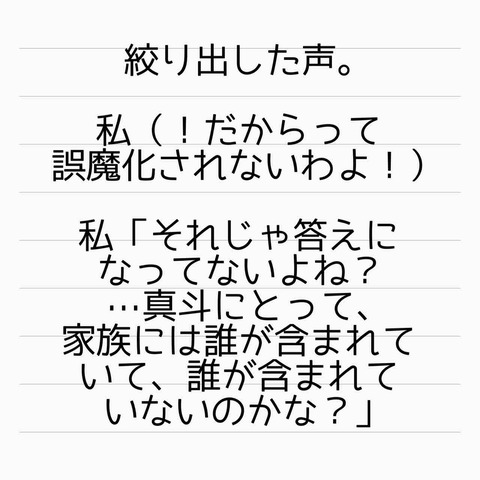 絞り出した声。
私（！だからって
誤魔化されないわよ！）
私「それじゃ答えに
なってないよね？
…真斗にとって、
家族には誰が含まれて
いて、誰が含まれて
いないのかな？」